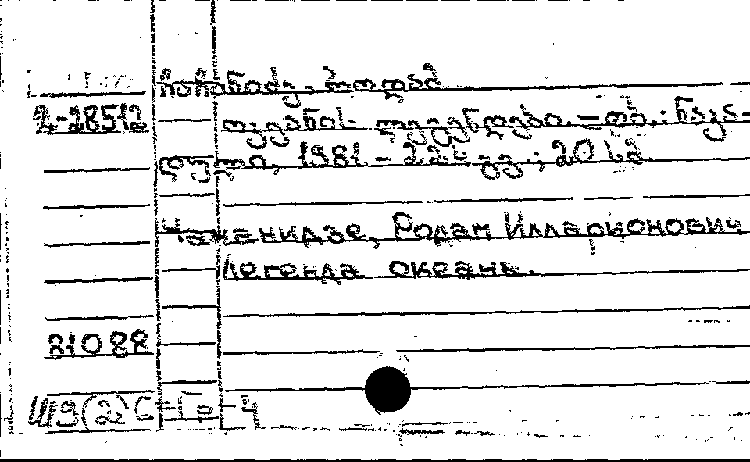 ჩაჩანიძე, როდამ
2-28512 ოკეანის ლეგენდა. – თბ.: ნაკა-
დული, 1981 – 224 გვ.; 20 სმ.
Чачанидзе, Родам Илларионович
Легенда океана.
81088
Ш9(2)С=Гр-4